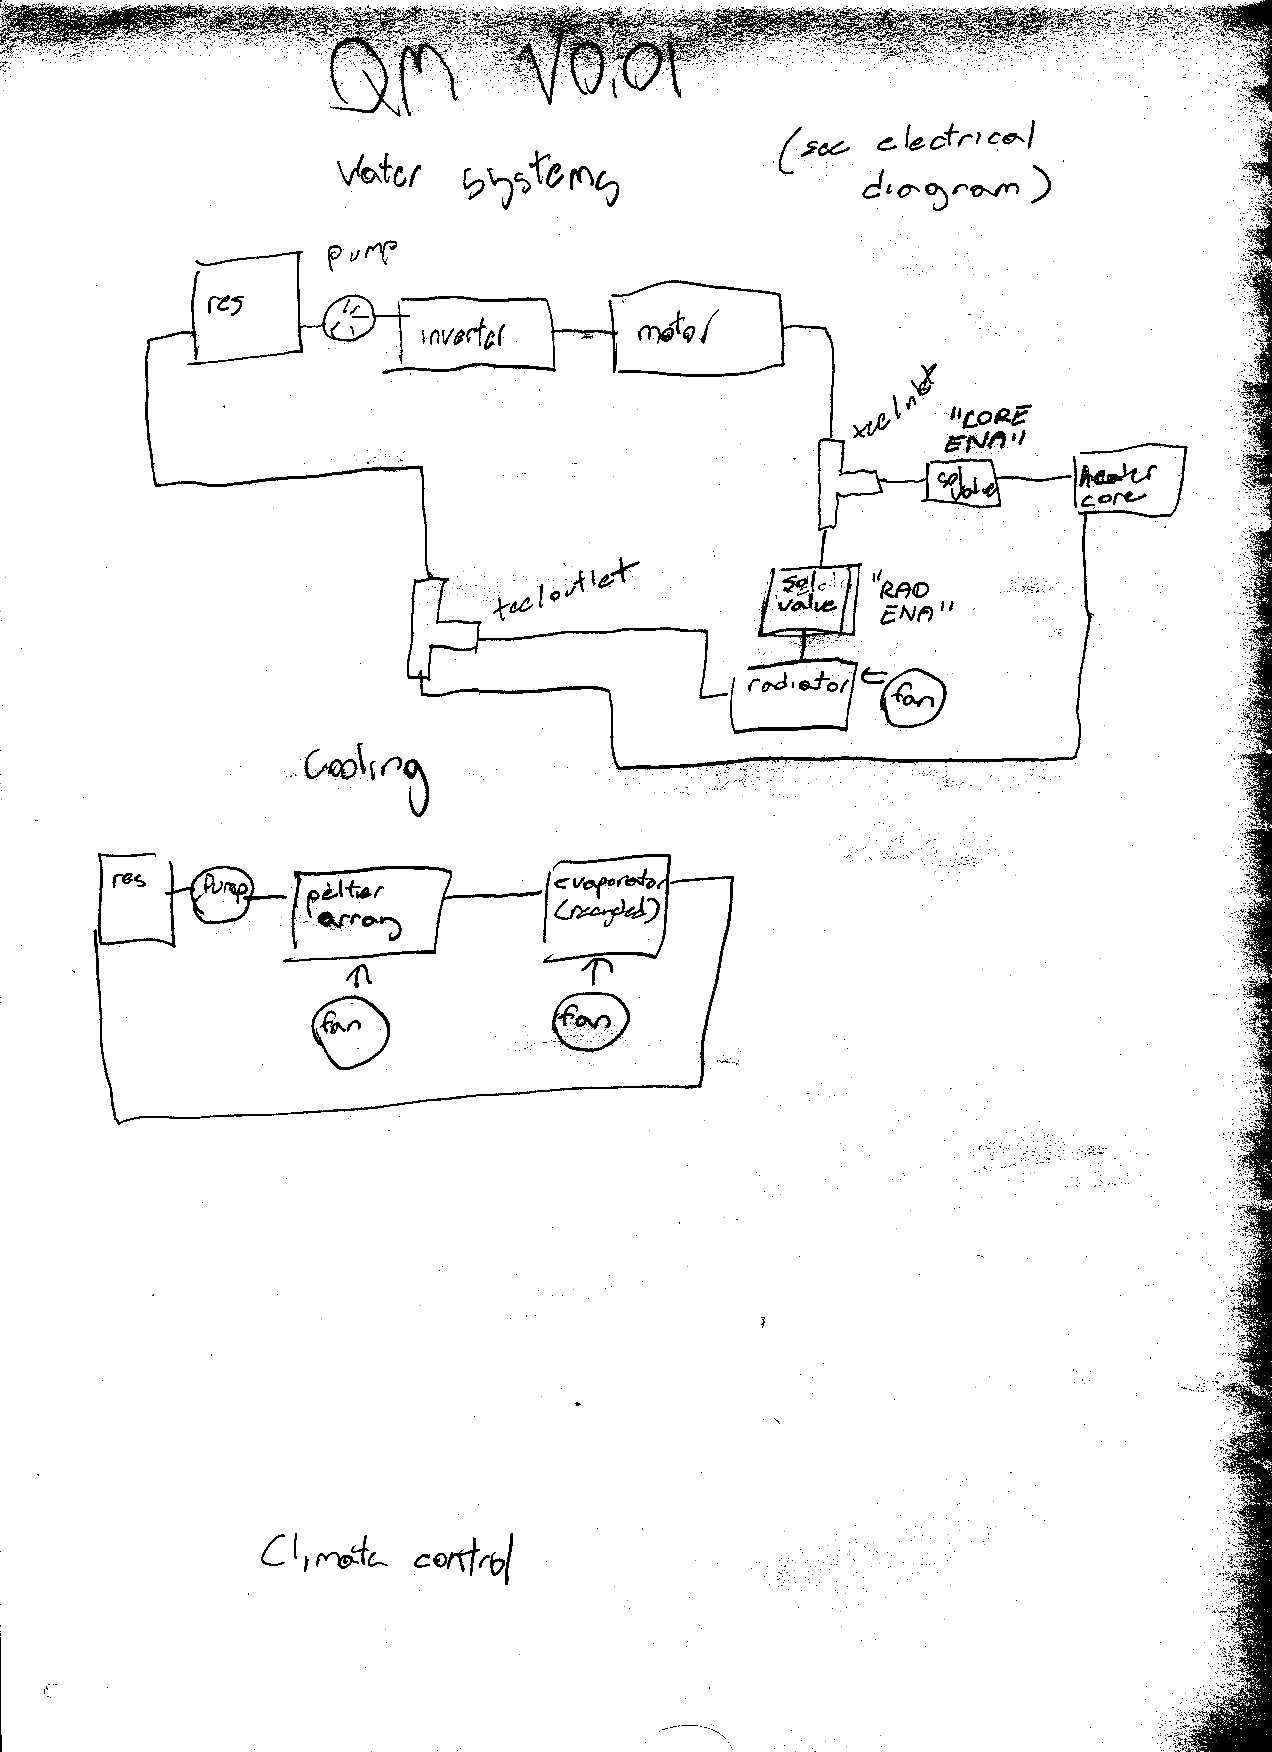 QM V0.01
Water systems
(see electrical
diagram)
pump
res
inverter
motor
tee inlet
"CORE
ENA"
sol
valve
heater
core
tee outlet
sol
valve
"RAD
ENA"
radiator
fan
Cooling
res
Pump
peltier
array
evaporator
(recycled)
fan
fan
Climate control